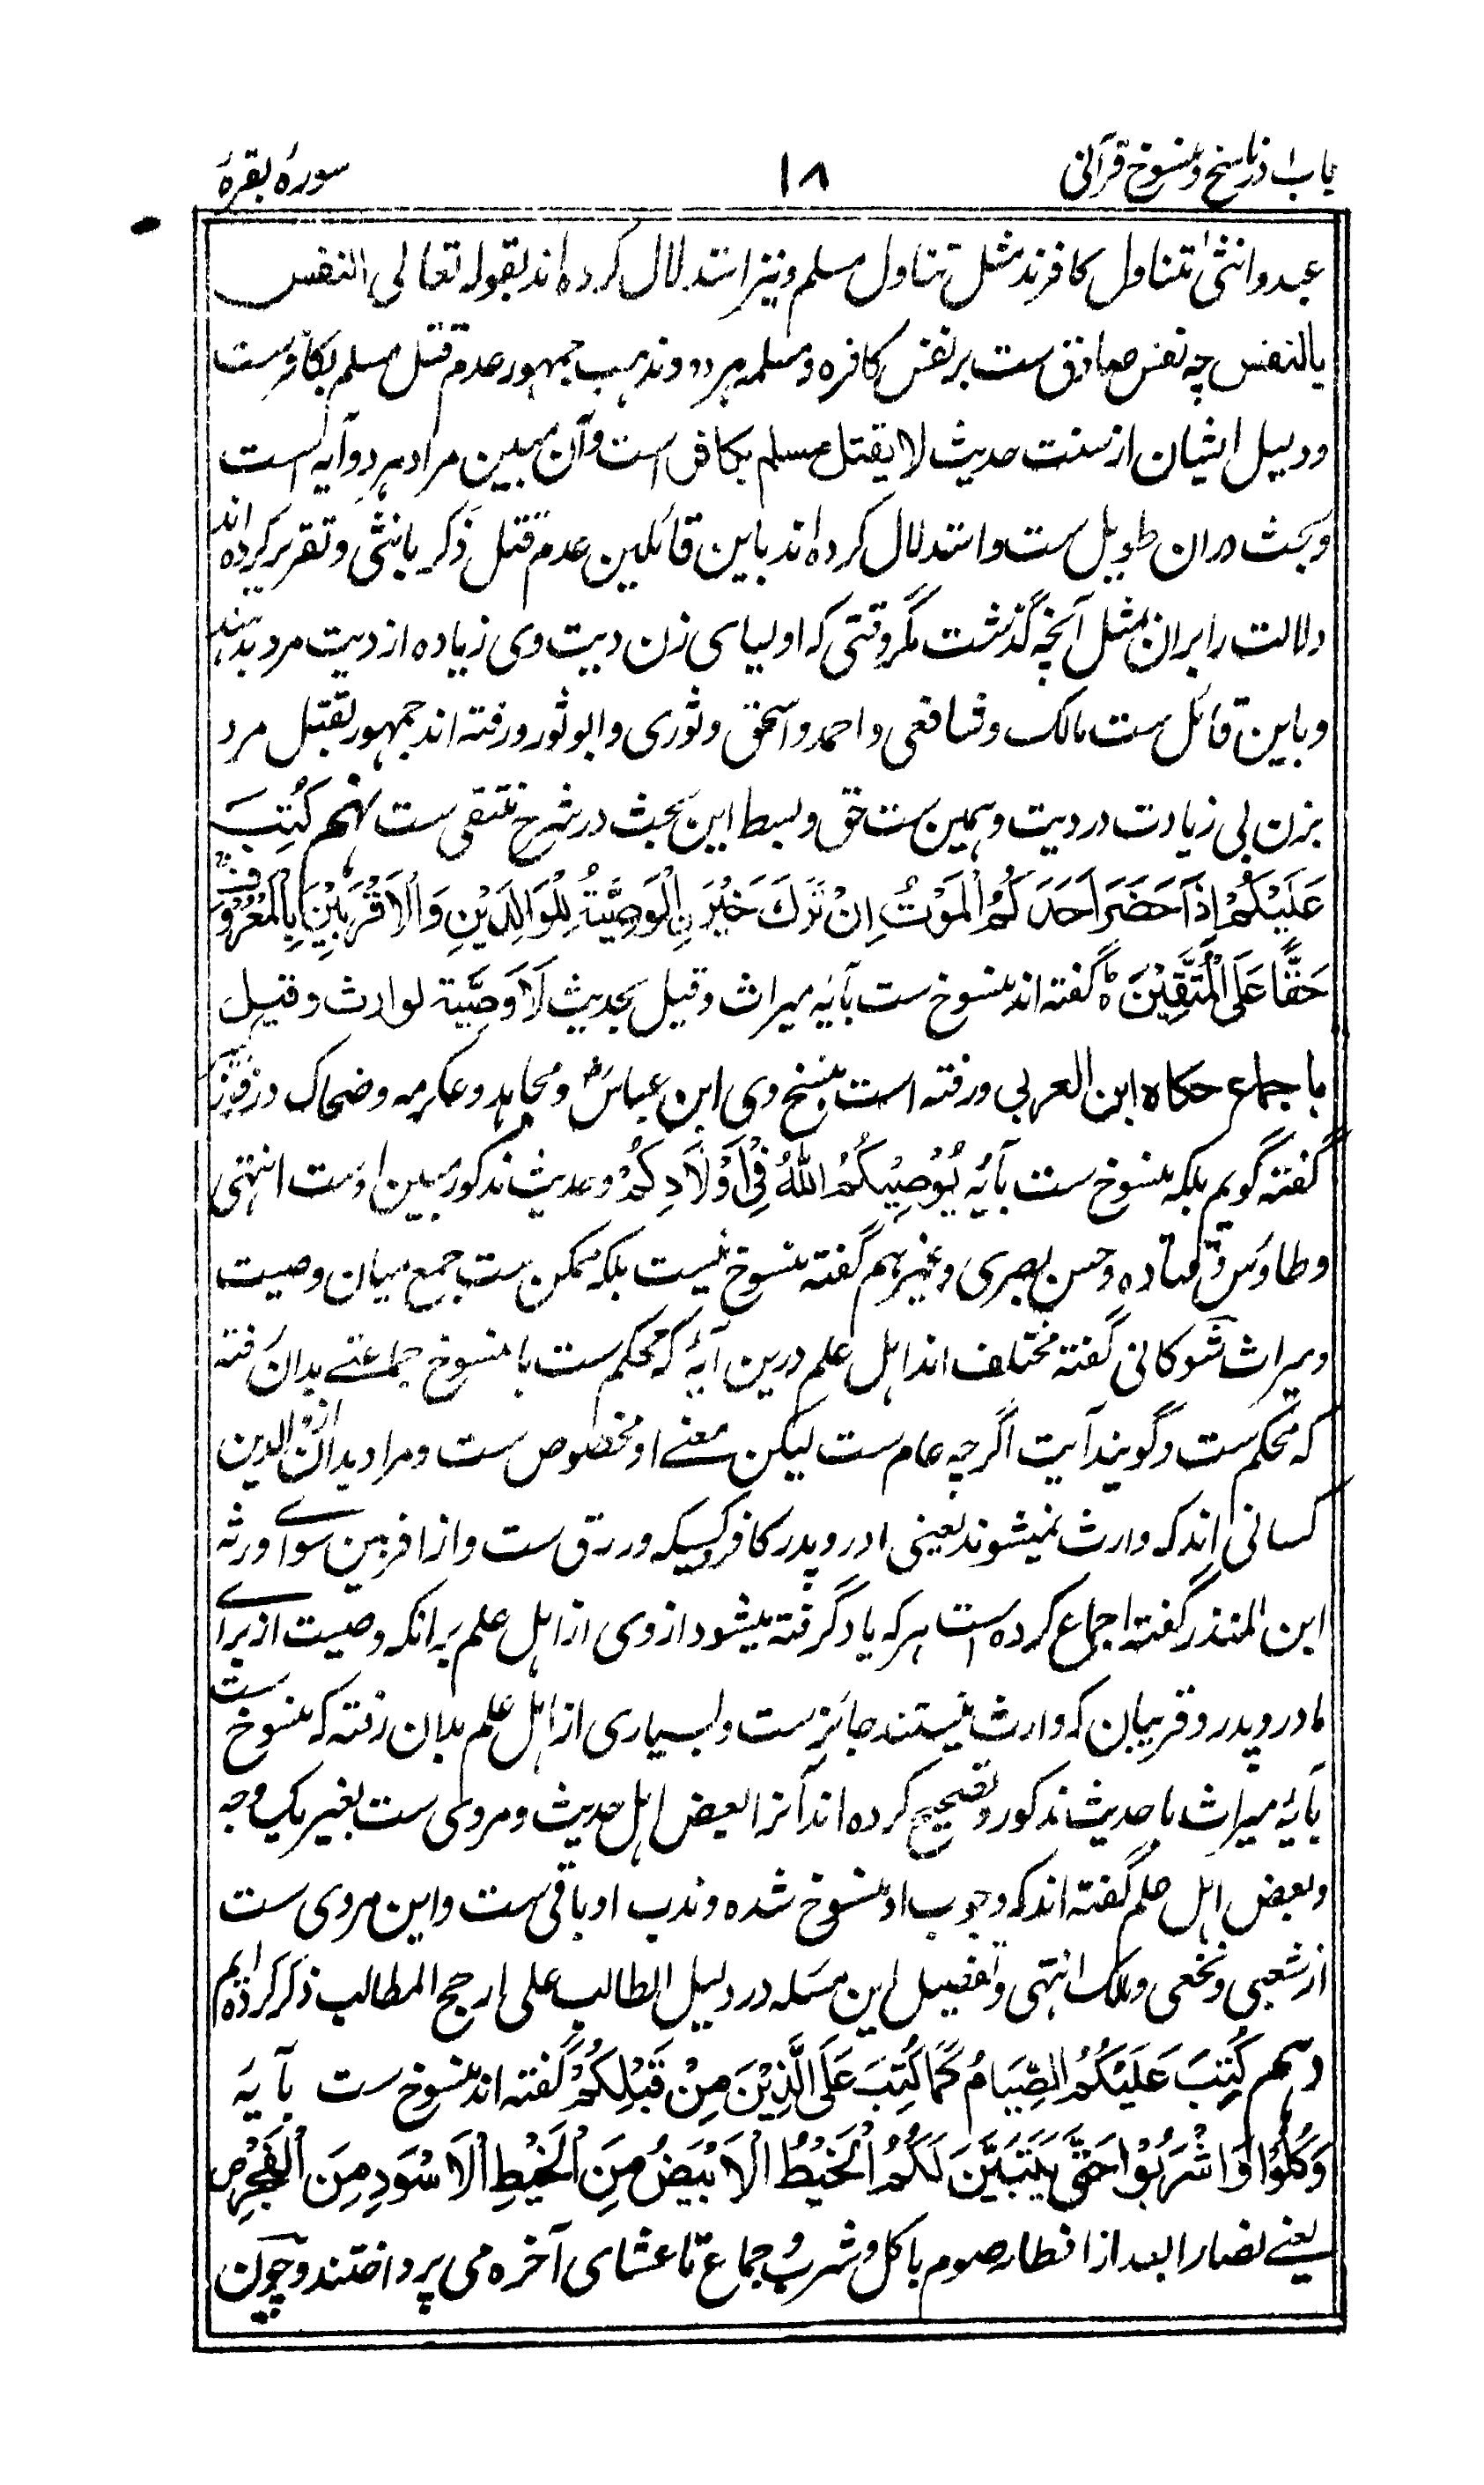 باب ۱ در ناسخ و منسوخ قرآنی ۱۸ سورۂ بقرۂ
عبد وانثیٰ متناول کافرند مثل تناول مسلم و نیز استدلال کرده اند بقوله تعالی النفس
بالنفس چه نفس صادق ست بر نفس کافره و مسلمه هر دو و مذهب جمهور عدم قتل مسلم بکافرست
و دلیل ایشان از سنت حدیث لا یقتل مسلم بکافر است و آن مبین مراد هر دو آیه است
و بحث دران طویل ست و استدلال کرده اند باین قائلین عدم قتل ذکر بانثی و تقریر کرده اند
دلالت را بران مثل آنچه گذشت مگر وقتی که اولیای زن دیت وی زیاده از دیت مرد بدهند
و باین قائل ست مالک و شافعی و احمد و اسحٰق و ثوری و ابو ثور و رفته اند جمهور بقتل مرد
بزن بی زیادت در دیت و همین ست حق و بسط این بحث در شرح منتقی ست نهم کُتِبَ
عَلَیْکُمْ اِذَا حَضَرَ اَحَدَکُمُ الْمَوْتُ اِنْ تَرَكَ خَیْرَ نِ الْوَصِیَّةُ لِلْوَالِدَیْنِ وَالْاَقْرَبِیْنَ بِالْمَعْرُوْفِ
حَقًّا عَلَی الْمُتَّقِیْنَ ٥ گفته اند منسوخ ست بآیه میراث و قیل بحدیث لَا وَصِیَّة لوارث و قیل
باجماع حکاه ابن العربی و رفته است بنسخ وی ابن عباسؓ و مجاهد و عکرمه و ضحاک در فوز
گفته گویم بلکه منسوخ ست بآیه یُوْصِیْکُمُ اللّٰهُ فِیْ اَوْلَادِکُمْ و حدیث مذکور مبین اوست انتهی
و طاؤس و قتاده و حسن بصری و غیرهم گفته منسوخ نیست بلکه ممکن ست جمع میان وصیت
و میراث شوکانی گفته مختلف اند اهل علم درین آیه که محکم ست یا منسوخ جماعتے بدان رفته
که محکم ست و گویند آیت اگرچه عام ست لیکن معنے او مخصوص ست و مراد بدان از والدین
کسانی اند که وارث نمیشوند یعنی مادر و پدر کافر و کسیکه در رق ست و از اقربین سوائے ورثه
ابن المنذر گفته اجماع کرده است هر که یاد گرفته میشود از وی از اهل علم بر آنکه وصیت از برائے
مادر و پدر و قریبان که وارث نیستند جائزست و بسیاری از اهل علم بدان رفته که منسوخ ست
بآیۂ میراث با حدیث مذکور و تصحیح کرده اند آنرا بعض اهل حدیث و مروی ست بغیر یک وجه
و بعض اهل علم گفته اند که وجوب او منسوخ شده و ندب او باقی ست و این مروی ست
از شعبی و نخعی و مالک انتهی و تفصیل این مسئله در دلیل الطالب علی ارجح المطالب ذکر کرده ایم
دهم کُتِبَ عَلَیْکُمُ الصِّیَامُ کَمَا کُتِبَ عَلَی الَّذِیْنَ مِنْ قَبْلِکُمْ گفته اند منسوخ ست بآیهٔ
وَکُلُوْا وَاشْرَبُوْا حَتّٰی یَتَبَیَّنَ لَکُمُ الْخَیْطُ الْاَبْیَضُ مِنَ الْخَیْطِ الْاَسْوَدِ مِنَ الْفَجْرِ ص
یعنے نصارا بعد از افطار صوم باکل و شرب و جماع تا عشای آخره می پرداختند و چون